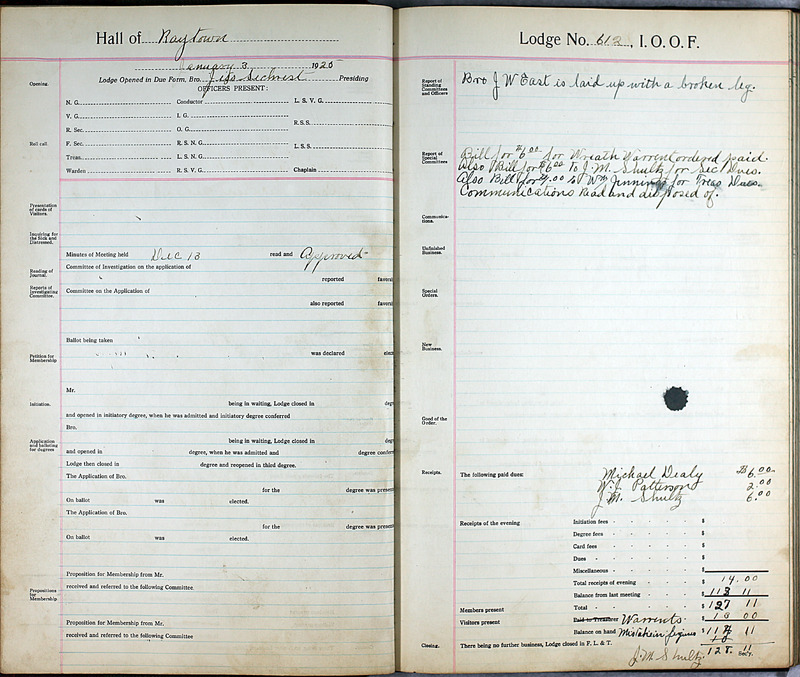 Hall of Raytown
January 3 1925
Lodge Opened in Due Form, Bro. Jess Sechrest Presiding
OFFICERS PRESENT:
Opening.
N. G. Conductor L. S. V. G.
V. G. I. G.
R. S. S.
R. Sec. O. G.
Roll call.
F. Sec. R. S. N. G.
L. S. S.
Treas. L. S. N. G.
Warden R. S. V. G. Chaplain
Presentation of cards of Visitors.
Inquiring for the Sick and Distressed.
Minutes of Meeting held Dec 13 read and Approved
Reading of Journal.
Committee of Investigation on the application of
reported favora
Reports of Investigating Committee.
Committee on the Application of
also reported favora
Ballot being taken
was declared elec
Petition for Membership
Mr.
Initiation.
being in waiting, Lodge closed in degr
and opened in initiatory degree, when he was admitted and initiatory degree conferred
Bro.
Application and balloting for degrees
being in waiting, Lodge closed in degr
and opened in degree, when he was admitted and degree conferr
Lodge then closed in degree and reopened in third degree.
The Application of Bro.
for the degree was presen
On ballot was elected.
The Application of Bro.
for the degree was presen
On ballot was elected.
Proposition for Membership from Mr.
Propositions for Membership
received and referred to the following Committee
Proposition for Membership from Mr.
received and referred to the following Committee
Lodge No. 612, I. O. O. F.
Report of Standing Committees and Officers
Bro J W East is laid up with a broken leg.
Report of Special Committees
Bill for $6.00 for Wreath Warrent ordered paid.
Also Bill for $6.00 to J. M. Shultz for Sec Dues.
Also Bill for $4.00 to Wm Jennings for Treas Dues.
Communications Read and disposed of.
Communications.
Unfinished Business.
Special Orders.
New Business.
Good of the Order.
Receipts.
The following paid dues: Michael Dealy $6.00
W. J. Patterson 2.00
J. M. Shultz 6.00
Receipts of the evening Initiation fees $
Degree fees $
Card fees $
Dues $
Miscellaneous $
Total receipts of evening $ 14.00
Balance from last meeting $ 113 11
Members present Total $ 127 11
Visitors present Paid to Treasurer Warrents
Balance on hand Mistake in figures
Closing.
There being no further business, Lodge closed in F. L. & T.
128. 11
J. M. Shultz. Sec'y.